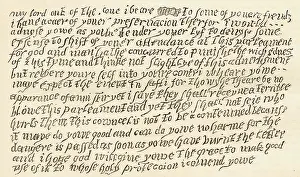 my lord out of the love i beare to some of youere frends
i have a caer of youer preservacion therfor i would
advyse yowe as yowe tender youer lyf to devys some
excuse to shift of youer attendance at this parleament
for god and man hathe concurred to punishe the wickednes
of this tyme and thinke not slightlye of this advertisment
but retyere youre self into youre contri wheare yowe
maye expect the event in safti for thowghe theare be no
apparance of anni stir yet i saye they shall receyve a terrible
blowe this parleament and yet they shall not seie who
hurts them this cowncel is not to be contemned because
it maye do yowe good and can do yowe no harme for the
dangere is passed as soon as yowe have burnt the letter
and i hope god will give yowe the grace to mak good
use of it to whose holy proteccion i comend yowe